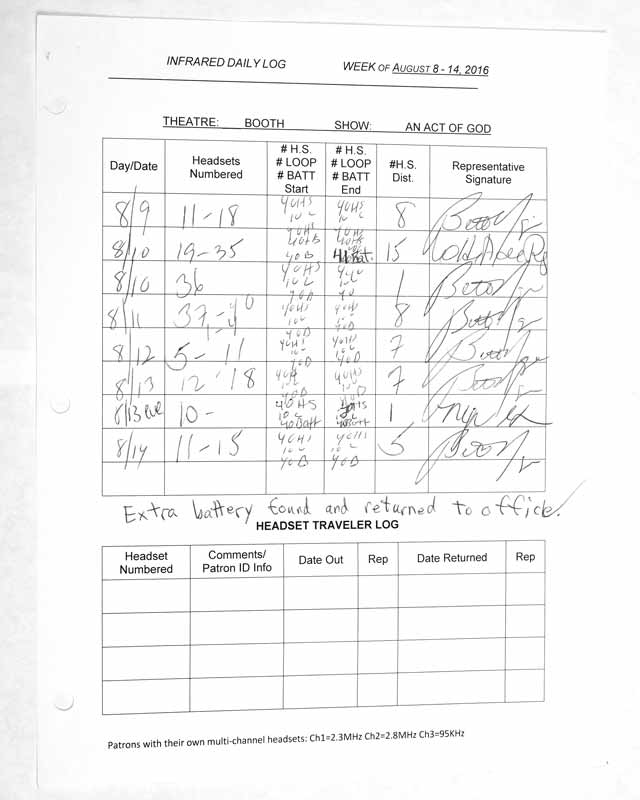 INFRARED DAILY LOG WEEK OF AUGUST 8 - 14, 2016
THEATRE: BOOTH SHOW: AN ACT OF GOD
Day/Date Headsets Numbered # H.S. # LOOP # BATT Start # H.S. # LOOP # BATT End #H.S. Dist. Representative Signature
8/9 11-18 40HS 10L 40HS 10L 8
8/10 19-35 40HS 40B 40HS 15
8/10 36 40HS 10L 40B 1
8/11 37-40 1-4 40HS 10L 40B 40HS 10L 40B 8
8/12 5-11 40HS 10L 40B 40HS 10L 40B 7
8/13 12-18 40H 10L 40B 40HS 10L 40B 7
8/13 eve 10- 40HS 10L 40Batt 1
8/14 11-15 40HS 10L 40B 40HS 10L 40B 5
Extra battery found and returned to office.
HEADSET TRAVELER LOG
Headset Numbered Comments/ Patron ID Info Date Out Rep Date Returned Rep
Patrons with their own multi-channel headsets: Ch1=2.3MHz Ch2=2.8MHz Ch3=95KHz